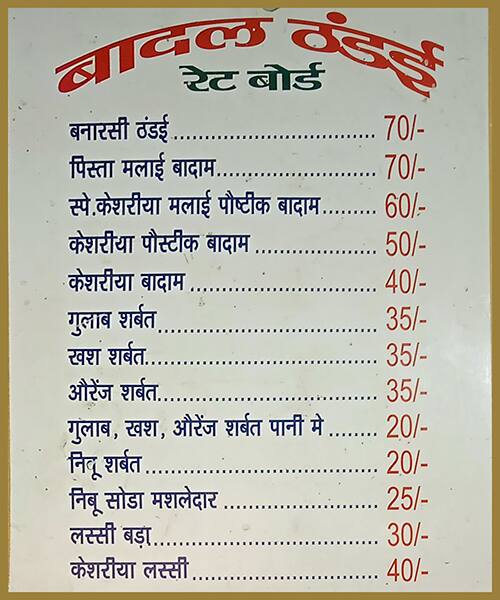 बादल ठंडई
रेट बोर्ड
बनारसी ठंडई.......................... 70/-
पिस्ता मलाई बादाम.................... 70/-
स्पे.केशरीया मलाई पौष्टीक बादाम....... 60/-
केशरीया पौस्टीक बादाम ............... 50/-
केशरीया बादाम ........................ 40/-
गुलाब शर्बत............................ 35/-
खश शर्बत.............................. 35/-
औरेंज शर्बत............................ 35/-
गुलाब, खश, औरेंज शर्बत पानी मे ........ 20/-
निबू शर्बत.............................. 20/-
निबू सोडा मशलेदार ................... 25/-
लस्सी बड़ा.............................. 30/-
केशरीया लस्सी ........................ 40/-